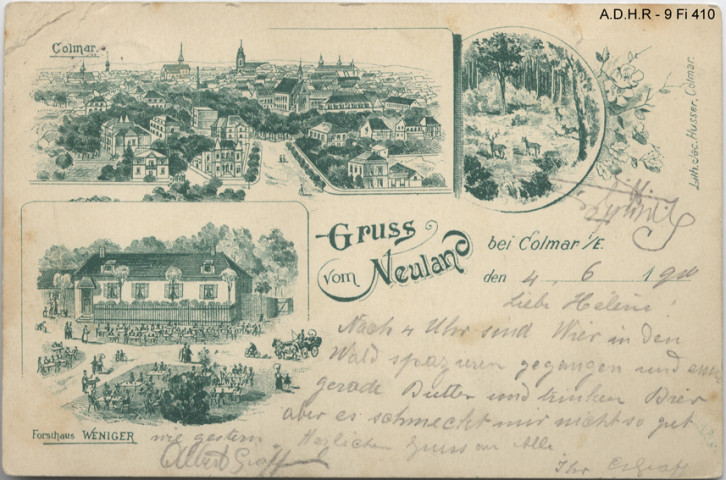 A.D.H.R - 9 Fi 410
Colmar.
Lith. Jac. Husser, Colmar.
Gruss
vom Neuland
bei Colmar i/E.
den 4. 6 1900
Liebe Helene!
Nach 4 Uhr sind Wier in den
Wald spazieren gegangen und essen
gerade Butter und trinken Bier
aber es schmeckt mir nicht so gut
wie gestern. Herzlichen Gruss an Alle
Forsthaus WENIGER
Albert Graff
Ihr Graff